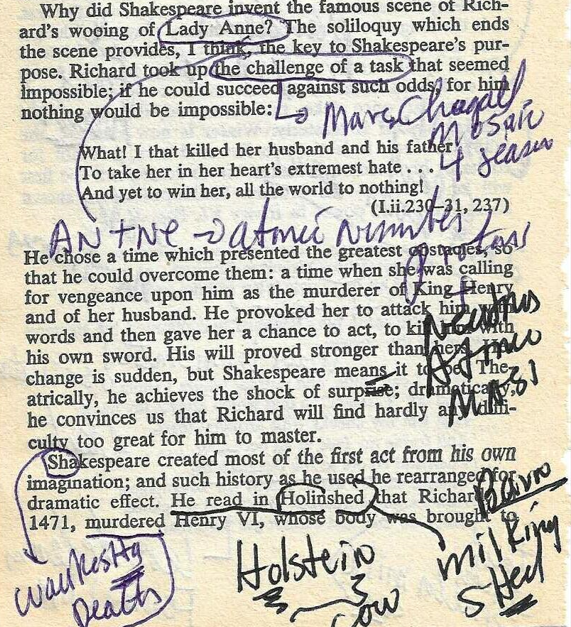 Why did Shakespeare invent the famous scene of Rich-
ard's wooing of Lady Anne? The soliloquy which ends
the scene provides, I think, the key to Shakespeare's pur-
pose. Richard took up the challenge of a task that seemed
impossible; if he could succeed against such odds, for him
nothing would be impossible:
Marc Chagall
Mosaic
4 season
What! I that killed her husband and his father
To take her in her heart's extremest hate . . .
And yet to win her, all the world to nothing!
(I.ii.230–31, 237)
AN + NE → atomic Number
Protons
+
He chose a time which presented the greatest obstacles, so
that he could overcome them: a time when she was calling
for vengeance upon him as the murderer of King Henry
and of her husband. He provoked her to attack him with
words and then gave her a chance to act, to kill him with
his own sword. His will proved stronger than hers. Her
change is sudden, but Shakespeare means it to be. The-
atrically, he achieves the shock of surprise; dramatically,
he convinces us that Richard will find hardly any diffi-
culty too great for him to master.
Neutrons
Atomic
Shakespeare created most of the first act from his own
imagination; and such history as he used he rearranged for
dramatic effect. He read in Holinshed that Richard
1471, murdered Henry VI, whose body was brought to
Barn
milking
SHed
Holstein
Cow
Death